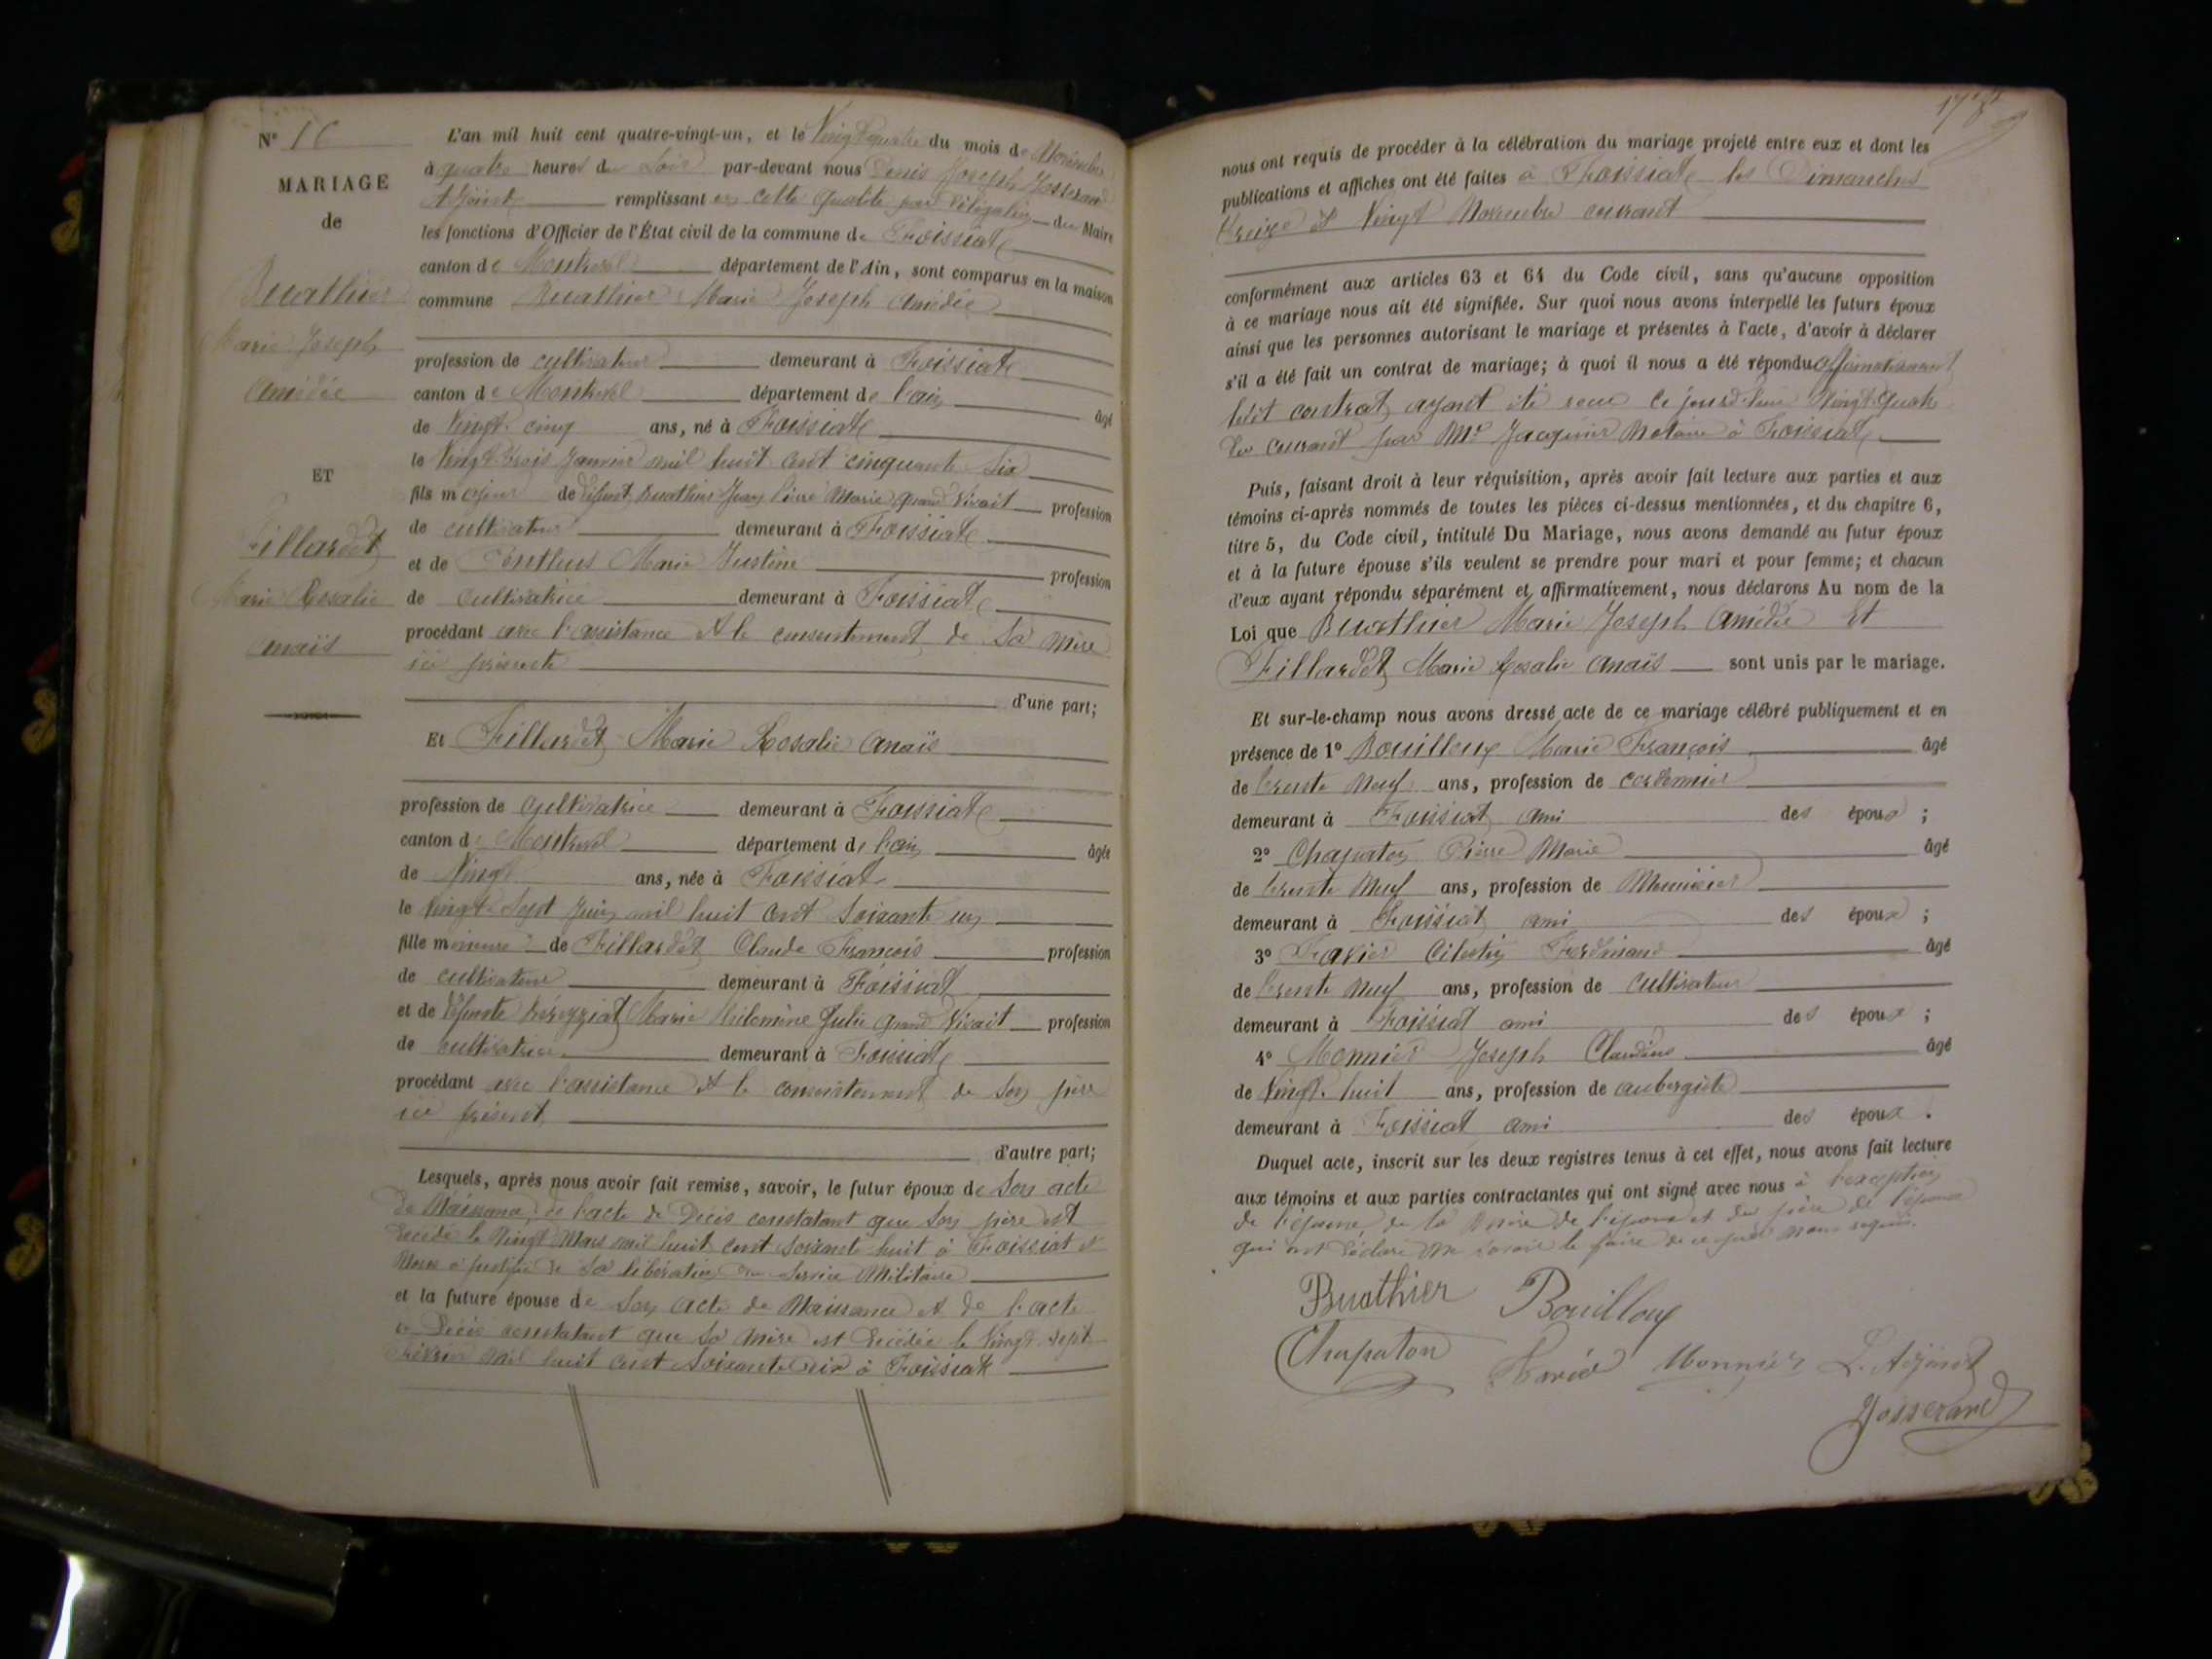 N° 16
MARIAGE
de
Buathier
Marie Joseph
Amédée
ET
Fillardet
Marie Rosalie
Anaïs
L'an mil huit cent quatre-vingt-un, et le Vingt quatre du mois de Novembre
à quatre heures du Soir par-devant nous Denis Joseph Josserand
Adjoint remplissant en cette qualité par délégation du Maire
les fonctions d'Officier de l'État civil de la commune de Foissiat
canton de Montrevel département de l'Ain, sont comparus en la maison
commune Buathier Marie Joseph Amédée
profession de cultivateur demeurant à Foissiat
canton de Montrevel département de l'ain âgé
de Vingt-cinq ans, né à Foissiat
le Vingt-trois Janvier mil huit cent cinquante Six
fils majeur de défunt Buathier Jean Pierre Marie quand Vivait profession
de cultivateur demeurant à Foissiat
et de Marie Justine profession
de cultivatrice demeurant à Foissiat
procédant avec l'assistance et le consentement de Sa mère
ici présente
d'une part;
Et Fillardet Marie Rosalie Anaïs
profession de cultivatrice demeurant à Foissiat
canton de Montrevel département de l'ain âgée
de Vingt ans, née à Foissiat
le Vingt-Sept Juin mil huit cent Soixante un
fille mineure de Fillardet Claude François profession
de cultivateur demeurant à Foissiat
et de défunte Béréyziat Marie Philomène Julie quand Vivait profession
de cultivatrice demeurant à Foissiat
procédant avec l'assistance et le consentement de Son père
ici présent
d'autre part;
Lesquels, après nous avoir fait remise, savoir, le futur époux de Son acte
de Naissance, de l'acte de Décès constatant que Son père est
décédé le Vingt Mars mil huit cent Soixante huit à Foissiat et
Nous a justifié de Sa libération du Service Militaire
et la future épouse de Son acte de Naissance et de l'acte
de Décès constatant que Sa mère est décédée le Vingt-Sept
Février mil huit cent Soixante dix à Foissiat
nous ont requis de procéder à la célébration du mariage projeté entre eux et dont les
publications et affiches ont été faites à Foissiat les Dimanches
treize et Vingt Novembre courant
conformément aux articles 63 et 64 du Code civil, sans qu'aucune opposition
à ce mariage nous ait été signifiée. Sur quoi nous avons interpellé les futurs époux
ainsi que les personnes autorisant le mariage et présentes à l'acte, d'avoir à déclarer
s'il a été fait un contrat de mariage; à quoi il nous a été répondu affirmativement
ledit contrat ayant été reçu ce jourd'hui Vingt-quatre
du courant par Me Jacquier Notaire à Foissiat
Puis, faisant droit à leur réquisition, après avoir fait lecture aux parties et aux
témoins ci-après nommés de toutes les pièces ci-dessus mentionnées, et du chapitre 6,
titre 5, du Code civil, intitulé Du Mariage, nous avons demandé au futur époux
et à la future épouse s'ils veulent se prendre pour mari et pour femme; et chacun
d'eux ayant répondu séparément et affirmativement, nous déclarons Au nom de la
Loi que Buathier Marie Joseph Amédée Et
Fillardet Marie Rosalie Anaïs sont unis par le mariage.
Et sur-le-champ nous avons dressé acte de ce mariage célébré publiquement et en
présence de 1° Bouilloux Marie François âgé
de trente Neuf ans, profession de cordonnier
demeurant à Foissiat ami des époux ;
2° Chapaton Pierre Marie âgé
de trente Neuf ans, profession de Menuisier
demeurant à Foissiat ami des époux ;
3° Favier Célestin Ferdinand âgé
de trente Neuf ans, profession de cultivateur
demeurant à Foissiat ami des époux ;
4° Monnier Joseph Claudius âgé
de Vingt-huit ans, profession de aubergiste
demeurant à Foissiat ami des époux .
Duquel acte, inscrit sur les deux registres tenus à cet effet, nous avons fait lecture
aux témoins et aux parties contractantes qui ont signé avec nous à l'exception
de l'épouse, de la mère de l'époux et du père de l'épouse
qui ont déclaré ne savoir le faire de ce par nous requis.
Buathier Bouilloux
Chapaton Monnier L'Adjoint
Josserand